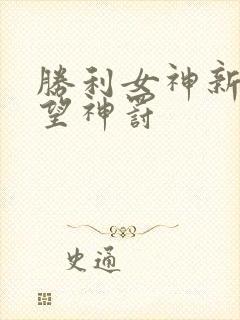 勝利女神新
望神罰
史通